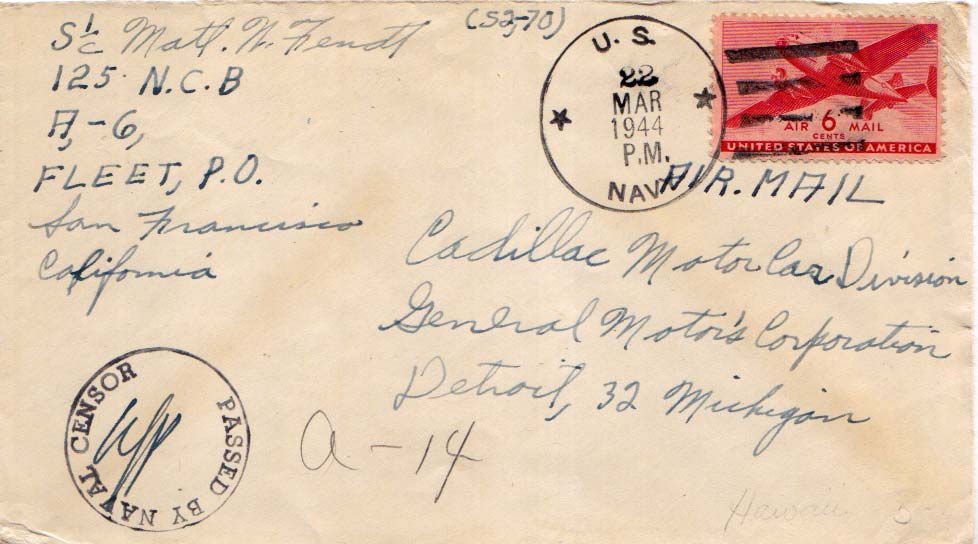 (52,-70)
S1/c Matt. N. Fendt
125 N.C.B
A-6,
FLEET, P.O.
San Francisco
California
U. S.
22
MAR
1944
P.M.
NAVY
AIR 6 MAIL
CENTS
UNITED STATES OF AMERICA
AIR. MAIL
Cadillac Motor Car Division
General Motor's Corporation
Detroit, 32 Michigan
PASSED BY NAVAL CENSOR
a-14
Hawaii